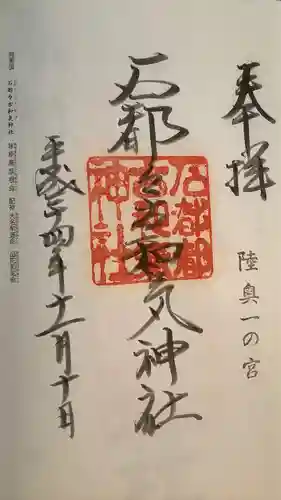 奉拝
陸奥一の宮
石都々古和気神社
石都都
古和気
神社
平成廿四年十一月十日